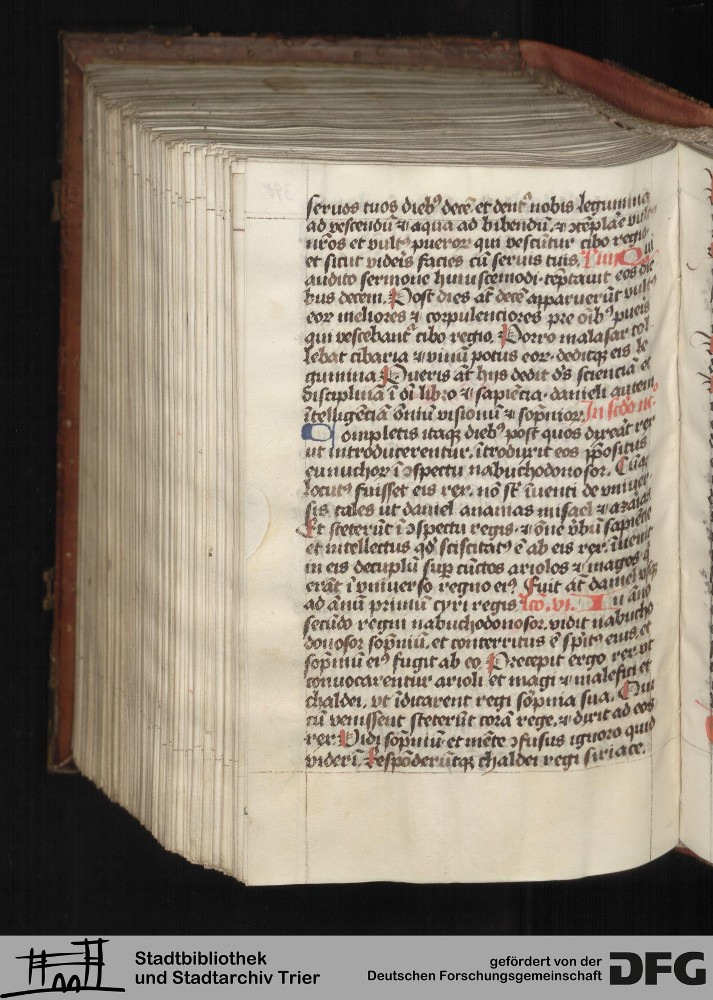 seruos tuos dieb⁹ decē et dent᷑ nobis legumina
ad vescendū ⁊ aqua ad bibendū. ⁊ ꝯtēplare vult⁹
nr̄os et vult⁹ pueroꝝ qui vescūtur cibo regio
et sicut videis facies cū seruis tuis. Qui
audito sermone huiuscemodi. tēptauit eos die
bus decem. Post dies at̄ decē apparuerūt vult⁹
eoꝝ meliores ⁊ corpulenciores pre oīb⁹ pueis
qui vescebant᷑ cibo regio. Porro malasar tol
lebat cibaria ⁊ vinū potus eoꝝ. deditqꝫ eis le
gumina. Pueris at̄ hijs dedit ds̄ scienciā et
disciplinā ī oī libro ⁊ sapiēcia. danieli autem
ītelligēciā omniū visionū ⁊ sopnioꝝ. In scdo noc.
Completis itaqꝫ dieb⁹ post quos dixeāt rex
ut introducerentur. ītroduxit eos ppositus
eunuchoꝝ ī ꝯspectu nabuchodonosor. Cūqꝫ
locut⁹ fuisset eis rex. nō st̄ īuenti de vniuer
sis tales ut daniel ananias misael ⁊ azarias
Et steterūt ī ꝯspectu regis. ⁊ oēe v̄bū sapiēcie
et intellectus qd̓ sciscitat⁹ ē ab eis rex. īuenit
in eis decuplū suꝑ cūctos ariolos ⁊ magos q̄
erāt ī vniuerso regno ei⁹. Fuit at̄ daniel vsqꝫ
ad ānū primū cyri regis. lco. vi. In āno
secūdo regni nabuchodonosor. vidit nabucho
donosor sopniū. et conterritus ē spirit⁹ eius. et
sopniū ei⁹ fugit ab eo. Precepit ergo rex. vt
conuocarentur arioli et magi ⁊ malefici et
chaldei. vt īdicarent regi sōpnia sua. Qui
cū venissent steterūt corā rege. ⁊ dixit ad eos
rex. Vidi sopniū. et mēte ꝯfusus ignoro quid
viderī. Respōderūtqꝫ chaldei regi siriace.
Stadtbibliothek
und Stadtarchiv Trier
gefördert von der
Deutschen Forschungsgemeinschaft
DFG